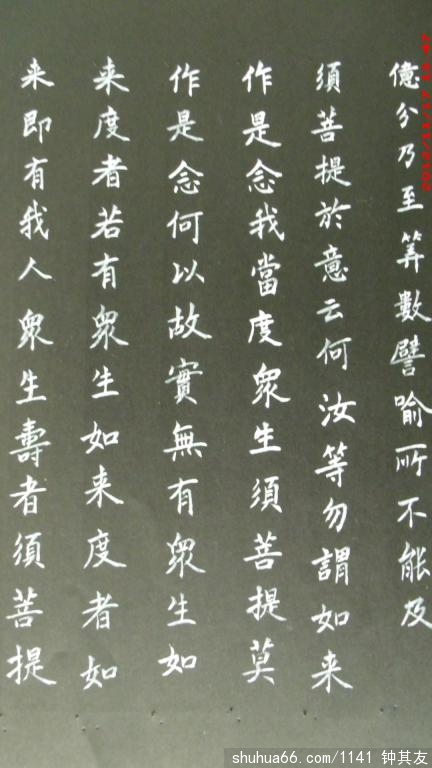 億分乃至筭數譬喻所不能及
須菩提於意云何汝等勿謂如来
作是念我當度衆生須菩提莫
作是念何以故實無有衆生如
来度者若有衆生如来度者如
来即有我人衆生壽者須菩提
shuhua66.com/1141 钟其友